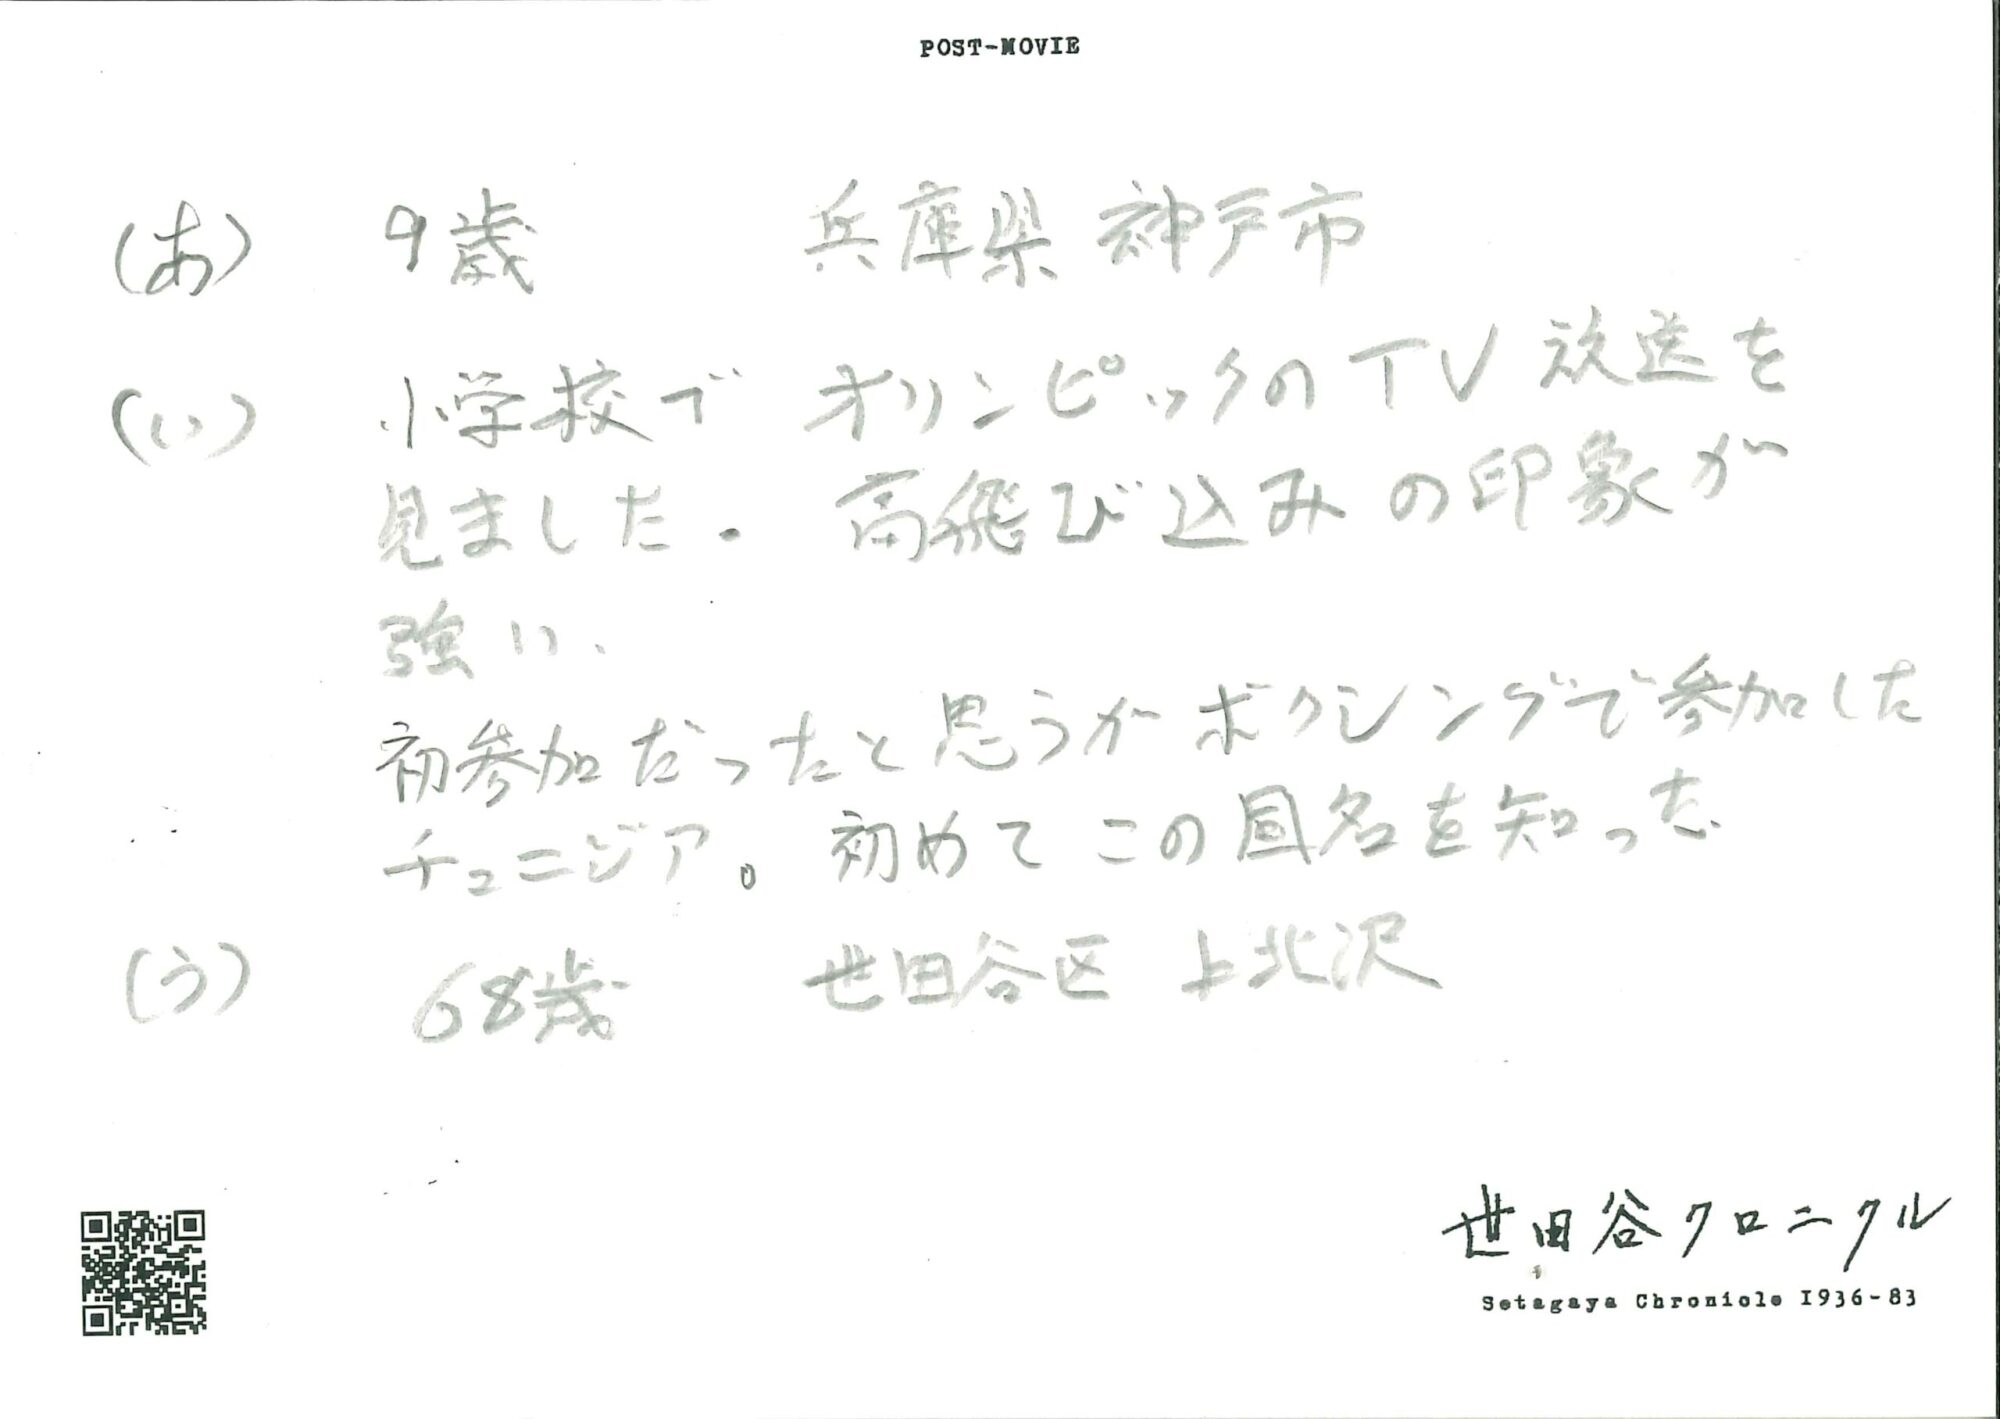 POST-MOVIE
(あ) 9歳 兵庫県 神戸市
(い) 小学校で オリンピックのTV放送を
見ました. 高飛び込みの印象が
強い.
初参加だったと思うがボクシングで参加した
チュニジア。初めてこの国名を知った.
(う) 68歳 世田谷区 上北沢
世田谷クロニクル
Setagaya Chronicle 1936-83